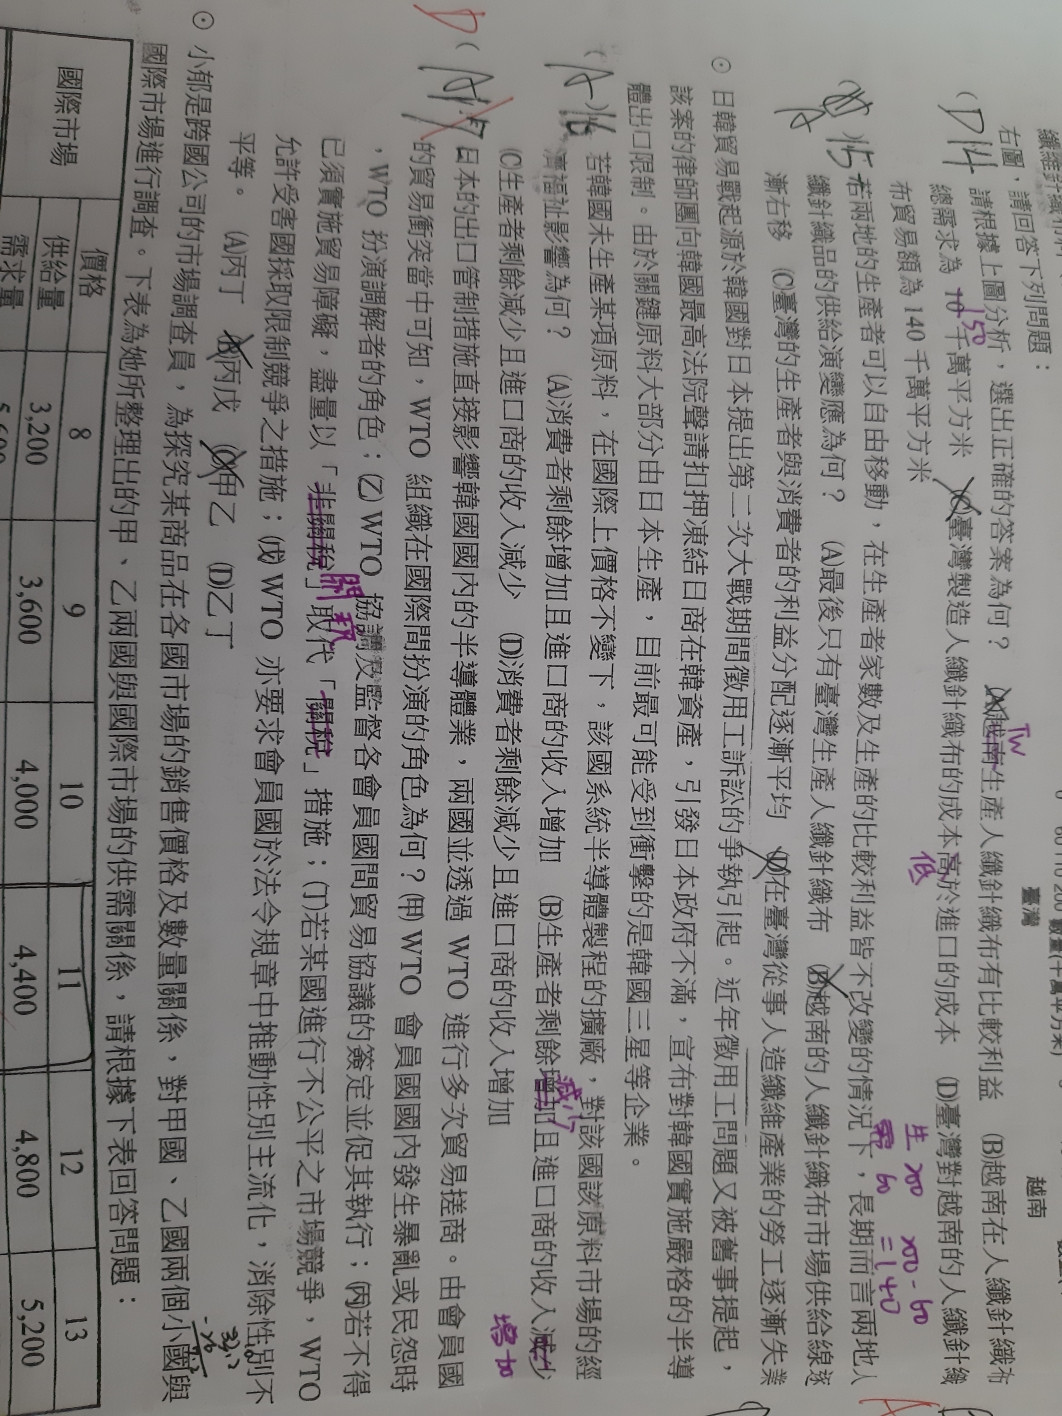 右圖，請回答下列問題：
臺灣 越南
(D)14. 請根據上圖分析，選出正確的答案為何？ (A)越南生產人纖針織布有比較利益 (B)越南在人纖針織布
TW
總需求為 10 千萬平方米 (C)臺灣製造人纖針織布的成本高於進口的成本 (D)臺灣對越南的人纖針織
150
低
布貿易額為 140 千萬平方米
生 200 200-60
需 60 =140
A 15. 若兩地的生產者可以自由移動，在生產者家數及生產的比較利益皆不改變的情況下，長期而言兩地人
纖針織品的供給演變應為何？ (A)最後只有臺灣生產人纖針織布 (B)越南的人纖針織布市場供給線逐
漸右移 (C)臺灣的生產者與消費者的利益分配逐漸平均 (D)在臺灣從事人造纖維產業的勞工逐漸失業
⊙ 日韓貿易戰起源於韓國對日本提出第二次大戰期間徵用工訴訟的爭執引起。近年徵用工問題又被舊事提起，
該案的律師團向韓國最高法院聲請扣押凍結日商在韓資產，引發日本政府不滿，宣布對韓國實施嚴格的半導
體出口限制。由於關鍵原料大部分由日本生產，目前最可能受到衝擊的是韓國三星等企業。
(A)16. 若韓國未生產某項原料，在國際上價格不變下，該國系統半導體製程的擴廠，對該國該原料市場的經
濟福祉影響為何？ (A)消費者剩餘增加且進口商的收入增加 (B)生產者剩餘增加且進口商的收入減少
減少
增加
(C)生產者剩餘減少且進口商的收入減少 (D)消費者剩餘減少且進口商的收入增加
D (A)17. 日本的出口管制措施直接影響韓國國內的半導體業，兩國並透過 WTO 進行多次貿易搓商。由會員國
的貿易衝突當中可知，WTO 組織在國際間扮演的角色為何？(甲) WTO 會員國國內發生暴亂或民怨時
，WTO 扮演調解者的角色；(乙) WTO 協調及監督各會員國間貿易協議的簽定並促其執行；(丙)若不得
已須實施貿易障礙，盡量以「非關稅」取代「關稅」措施；(丁)若某國進行不公平之市場競爭，WTO
關稅
允許受害國採取限制競爭之措施；(戊) WTO 亦要求會員國於法令規章中推動性別主流化，消除性別不
平等。 (A)丙丁 (B)丙戊 (C)甲乙 (D)乙丁
⊙ 小郁是跨國公司的市場調查員，為探究某商品在各國市場的銷售價格及數量關係，對甲國、乙國兩個小國與
國際市場進行調查。下表為她所整理出的甲、乙兩國與國際市場的供需關係，請根據下表回答問題：
價格 8 9 10 11 12 13
國際市場 供給量 3,200 3,600 4,000 4,400 4,800 5,200
需求量